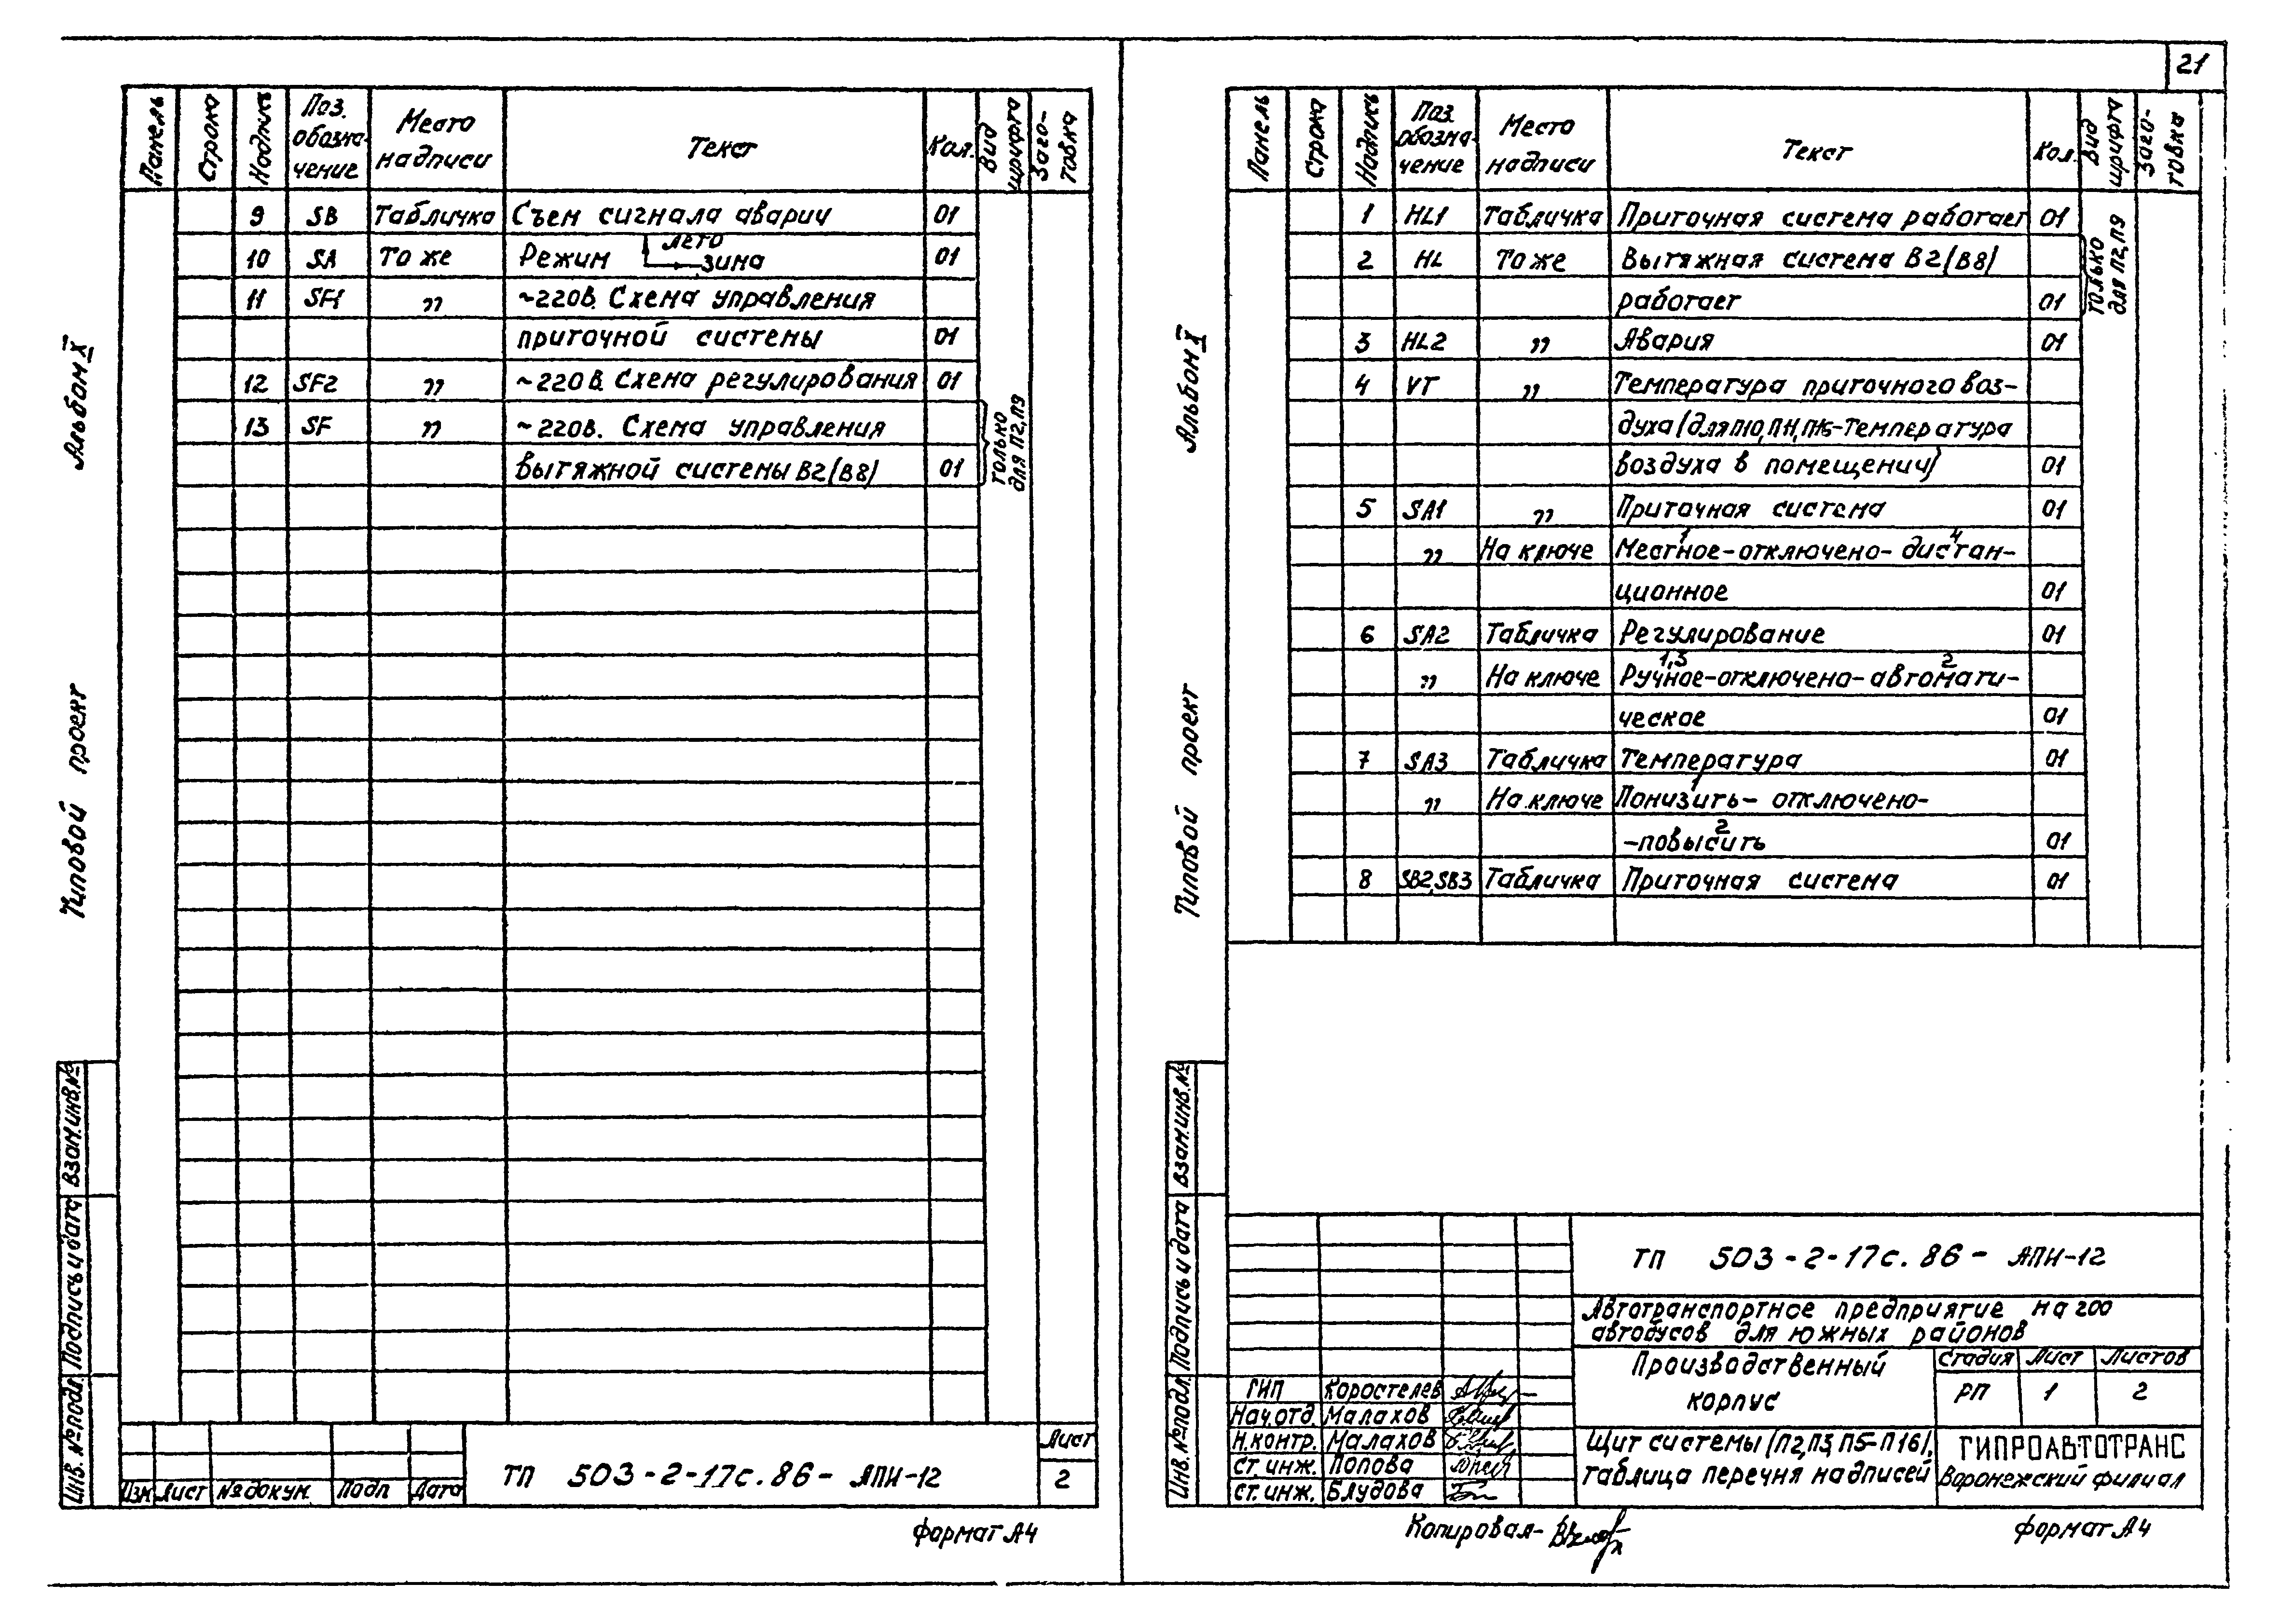 21
Панель Строка Надпись Поз. обозна-чение Место надписи Текст Кол. Вид шрифта Заго-товка
9 SB Табличка Съем сигнала аварии 01
10 SA То же Режим лето зима 01
11 SF1 „ ~220в. Схема управления
приточной системы 01
12 SF2 „ ~220в. Схема регулирования 01
13 SF „ ~220в. Схема управления
вытяжной системы В2(В8) 01
только для П2,П9
Альбом X
Типовой проект
Взам.инв.№
Подпись и дата
Инв.№ подл.
Изм Лист № докум. Подп Дата
ТП 503-2-17с.86- АПИ-12
Лист
2
Формат А4
Панель Строка Надпись Поз. обозна-чение Место надписи Текст Кол. Вид шрифта Заго-товка
1 HL1 Табличка Приточная система работает 01
2 HL То же Вытяжная система В2(В8)
работает 01
только для П2,П9
3 HL2 „ Авария 01
4 VT „ Температура приточного воз-
духа (для П10,П11, -Температура
воздуха в помещении) 01
5 SA1 „ Приточная система 01
1 4
„ На ключе Местное-отключено-дистан-
ционное 01
6 SA2 Табличка Регулирование 01
1,3 2
„ На ключе Ручное-отключено-автомати-
ческое 01
7 SA3 Табличка Температура 01
1
„ На ключе Понизить- отключено-
2
-повысить 01
8 SB2,SB3 Табличка Приточная система 01
Альбом X
Типовой проект
Взам.инв.№
Подпись и дата
Инв.№ подл.
ТП 503-2-17с.86- АПИ-12
Автотранспортное предприятие на 200
автобусов для южных районов
Производственный
корпус
Стадия Лист Листов
РП 1 2
ГИП Коростелев
Нач.отд. Малахов
Н.контр. Малахов
Ст.инж. Попова
Ст.инж. Блудова
Щит системы (П2,П3,П5-П16),
таблица перечня надписей
ГИПРОАВТОТРАНС
Воронежский филиал
Копировал-
Формат А4